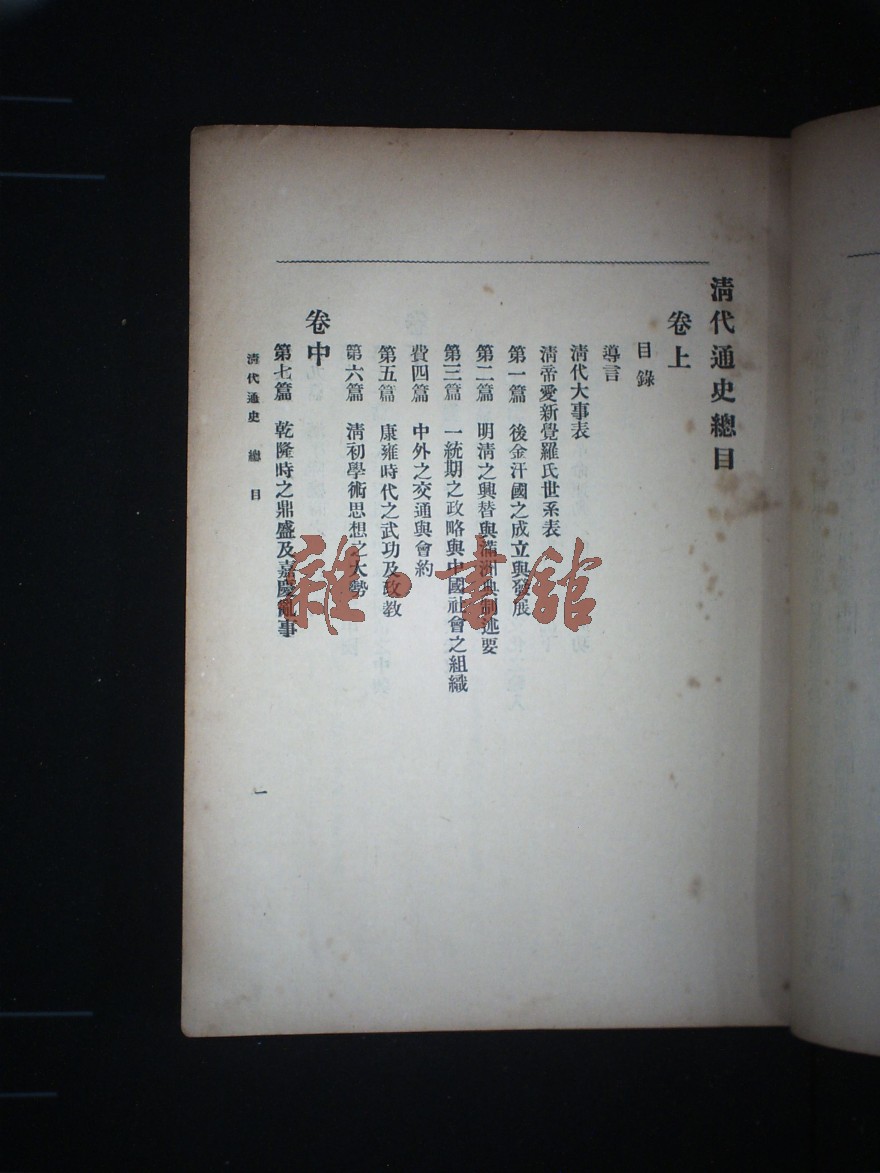 清代通史總目
卷上
目錄
導言
清代大事表
清帝愛新覺羅氏世系表
第一篇 後金汗國之成立與發展
第二篇 明清之興替與滿洲典制述要
第三篇 一統期之政略與中國社會之組織
費四篇 中外之交通與會約
第五篇 康雍時代之武功及政教
第六篇 清初學術思想之大勢
卷中
第七篇 乾隆時之鼎盛及嘉慶亂事
清代通史 總目
一
雜·書館